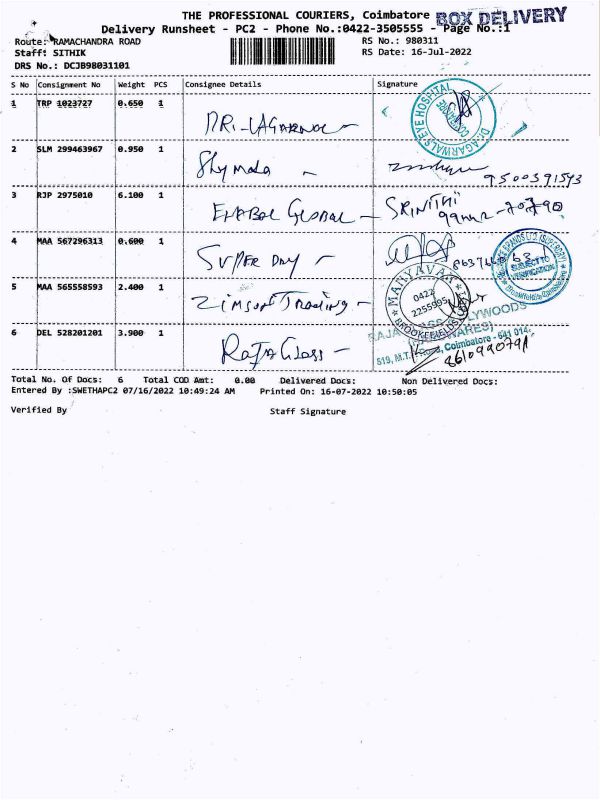 THE PROFESSIONAL COURIERS, Coimbatore BOX DELIVERY
Delivery Runsheet - PC2 - Phone No.:0422-3505555 - Page No.:1
Route: RAMACHANDRA ROAD
RS No.: 980311
Staff: SITHIK
RS Date: 16-Jul-2022
DRS No.: DCJB98031101
S No Consignment No Weight PCS Consignee Details Signature
1 TRP 1023727 0.650 1
Dr.AGARWAL'S EYE HOSPITAL
2 SLM 299463967 0.950 1 Shymala
3 RJP 2975010 6.100 1 Global - SRINITHI
4 MAA 567296313 0.600 1 SUPER DRY -
SUBJECT TO VERIFICATION
5 MAA 565558593 2.400 1 Zimson Trading -
MANYAVAR
0422
2255995
BROOKEFIELDS
6 DEL 528201201 3.900 1 Raja Glass -
Coimbatore - 641 014.
8610990791
Total No. Of Docs: 6 Total COD Amt: 0.00 Delivered Docs: Non Delivered Docs:
Entered By :SWETHAPC2 07/16/2022 10:49:24 AM Printed On: 16-07-2022 10:50:05
Verified By Staff Signature